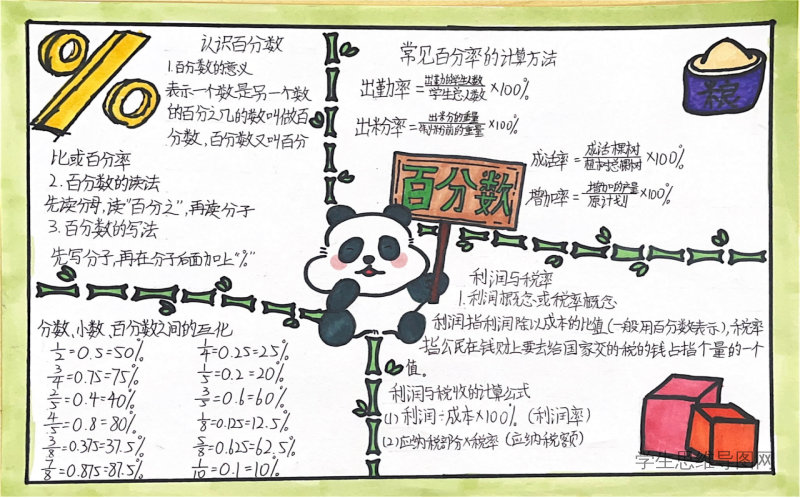 认识百分数
1.百分数的意义
表示一个数是另一个数
的百分之几的数叫做百
分数,百分数又叫百分
比或百分率
2.百分数的读法
先读分母,读“百分之”,再读分子
3.百分数的写法
先写分子,再在分子后面加上“%”
常见百分率的计算方法
出勤率=出勤的学生人数/学生总人数×100%
出粉率=出来粉的重量/×100%
成活率=成活棵树/植树总棵树×100%
增加率=增加的产量/原计划×100%
粮
百分数
分数,小数,百分数之间的互化
1/2=0.5=50%
3/4=0.75=75%
2/5=0.4=40%
4/5=0.8=80%
3/8=0.375=37.5%
7/8=0.875=87.5%
1/4=0.25=25%
1/5=0.2=20%
3/5=0.6=60%
1/8=0.125=12.5%
5/8=0.625=62.5%
1/10=0.1=10%
利润与税率
1.利润概念或税率概念
利润指利润除以成本的比值(一般用百分数表示),税率
指公民在钱财上要去给国家交的税的钱占指个量的一个
值。
利润与税收的计算公式
(1)利润÷成本×100%(利润率)
(2)应纳税部分×税率(应纳税额)
学生思维导图网